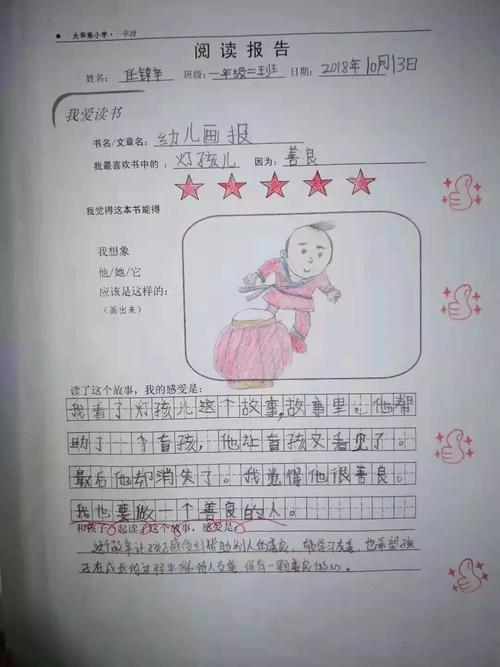 大华路小学·一年级
阅读报告
姓名： 班级：一年级二班 日期：2018年10月13日
我爱读书
书名/文章名：幼儿画报
我最喜欢书中的：灯孩儿 因为：善良
我觉得这本书能得
我想象
他/她/它
应该是这样的：
（画出来）
读了这个故事，我的感受是：
我看了灯孩儿这个故事，故事里……他帮
助了一个盲孩，他让盲孩又看见了。
最后他却消失了。我觉得他很善良。
我也要做一个善良的人。
和孩子一起读了这个故事，感受是
这个故事让孩子感受到帮助别人的善良，能学习友善，也希望孩
子在成长的过程中 待人友善，保有一颗善良的心。